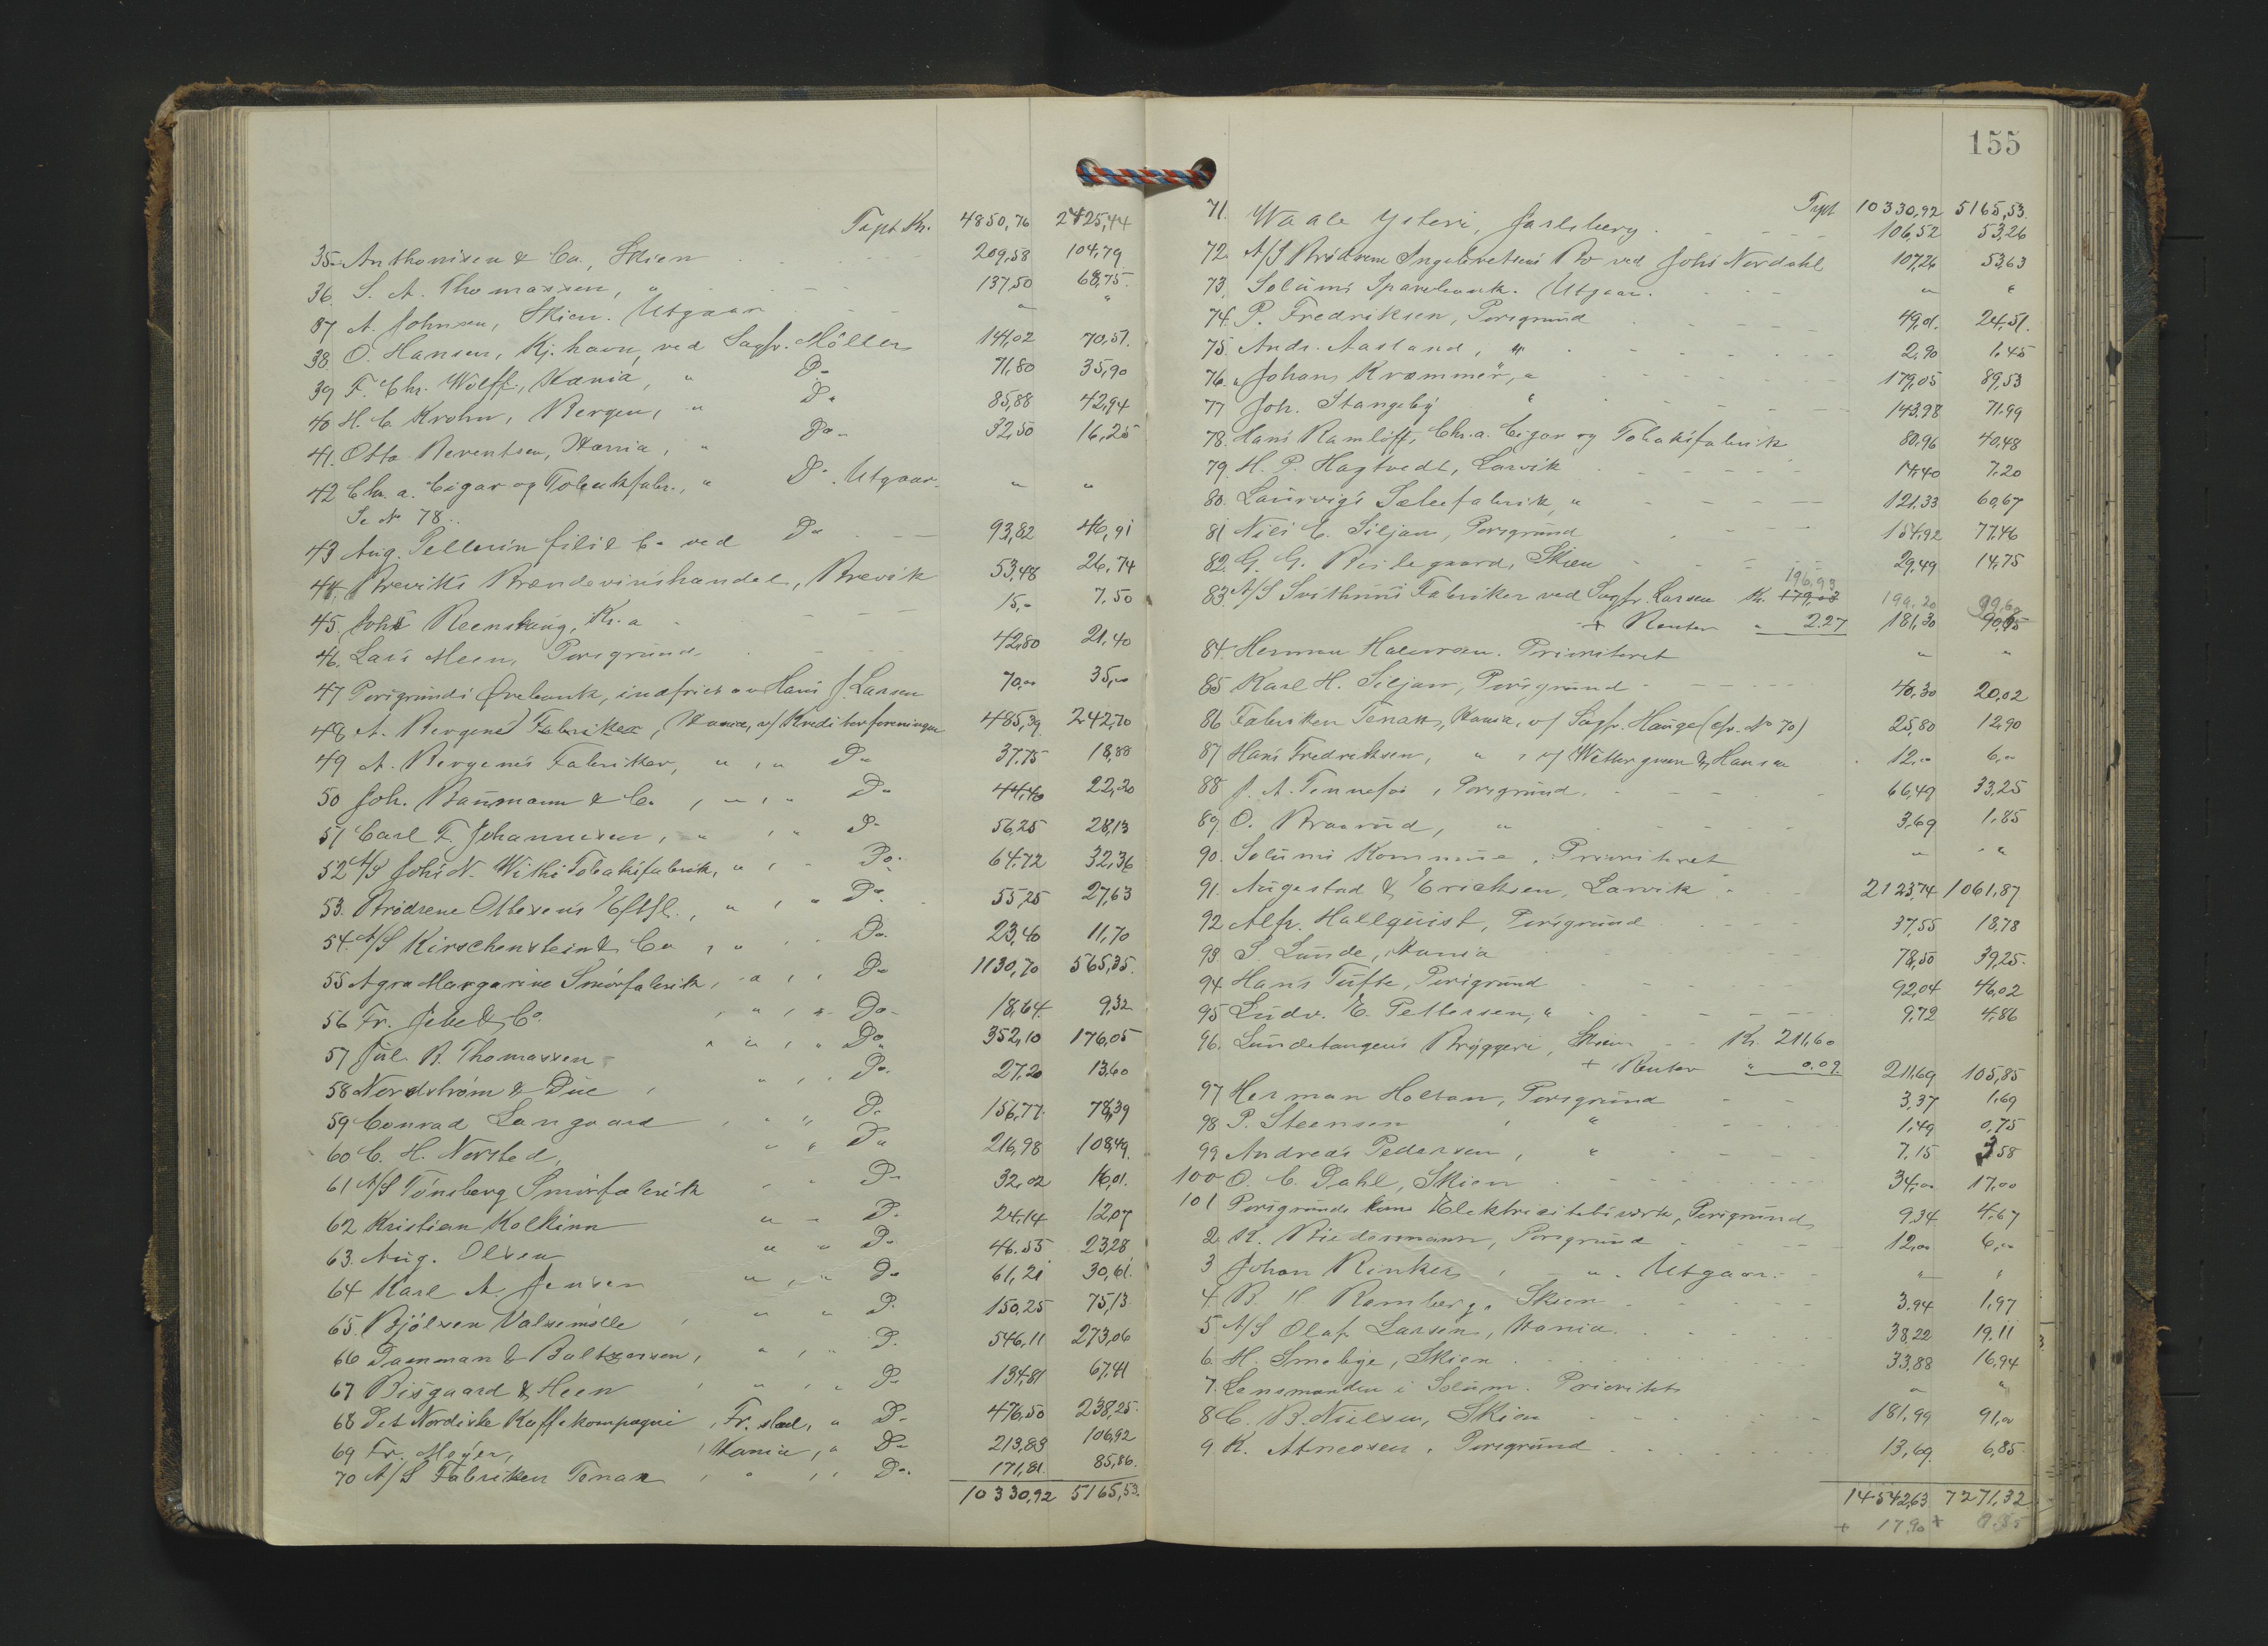 Tapt Kr. 4850,76 2425,44
35. Anthonisen & Co., Skien 209,58 104,79
36. S. A. Thomassen, " 137,50 68,75.
37 A. Johnsen, Skien. Utgaar " "
38 O. Hansen, Kj.havn, ved Sagfr. Möller 141,02 70,51.
39 F. Chr. Wolff., Kania, " Do 71,80 35,90
40 H. C. Krohn, Bergen, " Do 85,88 42,94
41. Otto Berentsen, Kania, " Do 32,50 16,25
42 Chr.a. Cigar og Tobakfabr., " Do. Utgaar. " "
Se No 78..
43 Aug. Pellerin fils & Co ved Do 93,82 46,91
44. Breviks Brændevinshandel, Brevik 53,48 26,74
45. Johs Reenskaug, Kr.a 15,- 7,50
46. Lars Meen, Porsgrund. 42,80 21,40
47 Porsgrunds Ørebank, indfriet av Hans J. Larsen 70,00 35,00
48 A. Bergenes Fabriker, Kania, v/ Kreditorforeningen 485,39 242,70
49 A. Bergenes Fabriker, " , " Do 37,75 18,88
50 Joh. Baumann & Co , " , " Do 44,40 22,20
51 Carl F. Johannesen, " , " Do 56,25 28,13
52 A/S Johs N. Withs Tobaksfabrik, " , " Do. 64,72 32,36
53. Brødrene Ottesens Eftfl., " , " Do. 55,25 27,63
54. A/S Kirschenstein & Co , " . . Do. 23,40 11,70
55 Agra Margarine Smörfabrik, " , , Do 1130,70 565,35.
56 Fr. Jebe & Co. , " , " Do 18,64. 9,32
57 Jul. R. Thomassen , " , " Do 352,10 176,05
58 Nordström & Due , " , , Do. 27,20 13,60
59 Conrad Langaard , " " Do 156,77. 78,39
60 C. H. Norsted, " " Do 216,98 108,49.
61 A/S Tönsberg Smörfabrik " " Do 32,02 16,01.
62 Kristian Kolkinn " " Do 24,14 12,07
63. Aug. Olsen " " Do 46.55 23,28
64 Karl A. Jensen " , " Do 61,21 30,61.
65. Bjölsen Valsemölle , " " Do 150,25 75,13
66 Damman & Baltzersen, " , " Do. 546,11 273,06
67 Bisgaard & Heen , " , " Do 134,81 67,41
68 Det Nordiske Kaffekompagni , Fr.stad, " Do 476,50 238,25.
69 Fr. Meyer, , Kania, " Do 213,83 106,92
70 A/S Fabriken Tenax , " , , Do. 171,81. 85,86.
10330,92 5165,53.
155
Tapt 10330,92 5165,53.
71. Waale Ysteri, Jarlsberg. 106,52 53,26
72. A/S Brødrene Ingebretsens Bo ved Johs Nordahl 107,26 53,63
73. Solums Sparebank. Utgaar. " "
74. P. Fredriksen, Porsgrund 49,01. 24,51.
75. Andr. Aasland, " 2,90 1,45
76. Johans Kræmmer, " 179,05 89,53
77 Joh. Stangeby " 143,98 71,99
78. Hans Ramloff, Chr.a. Cigar og Tobaksfabrik 80,96 40,48
79. H. P. Hagtvedt, Larvik 14,40 7,20
80. Laurvigs Sæbefabrik, " 121.33 60,67
81 Nils C. Siljan, Porsgrund 154,92 77,46
82. G. G. Reilegaard, Skien 29,49 14,75
196,93
83. A/S Svithuns Fabriker ved Sagfr. Larsen Kr. 179,03 199.20 99,60
+ Renter " 2.27 181,30 90,65
84. Herman Halvorsen. Prioriteret " "
85 Karl H. Siljan, Porsgrund 40,30 20,02
86 Fabriken Tenax, Kania, v/ Sagfr. Hauge (cfr. No 70) 25,80 12,90
87 Hans Fredriksen, " , v/ Wettergreen & Hansen 12,00 6,00
88 J. A. Tennefos, Porsgrund. 66,49 33,25
89. O. Braarud, " 3,69 1,85
90. Solums Kommune. Prioriteret " "
91. Augestad & Erichsen, Larvik 2123,74 1061,87
92 Alfr. Hallquist, Porsgrund 37,55 18,78
93 S. Lunde, Kania 78,50 39,25.
94 Hans Tufte, Porsgrund 92,04 46,02
95 Ludv. E. Pettersen, " 9,72 4,86
96. Lundetangens Bryggeri, Skien Kr. 211,60
+ Renter " 0,09. 211,69 105,85
97 Herman Holtan, Porsgrund 3,37 1,69
98 P. Steensen , " 1,49 0,75
99 Andreas Pedersen, " 7,15 3,58
100 O. C. Dahl, Skien 34,00 17,00
101 Porsgrunds kom. Elektricitetsverk, Porsgrund 9,34 4,67
2 K. Biedermann, Porsgrund 12,00 6,00
3 Johan Rinkers , " . Utgaar. " "
4. B. H Ramberg. Skien 3.94 1,97
5 A/S Olaf Larsen, Kania. 38,22 19,11
6. H. Smebye, Skien. 33,88 16,94
7. Lensmanden i Solum. Prioritets " "
8 C. B. Nielsen, Skien 181,99 91,00
9. K. Abneosen. Porsgrund 13,69. 6,85.
14542,63 7271,32
+ 17,90 + 8.95